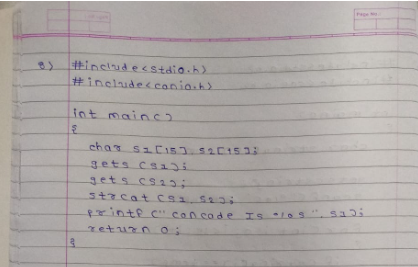 Page No.:
8) #include<stdio.h)
#include<conio.h)
int main()
{
char s1[15], s2[15];
gets (s1);
gets (s2);
strcat (s1, s2);
printf (" concade Is %s ", s1);
return 0;
}